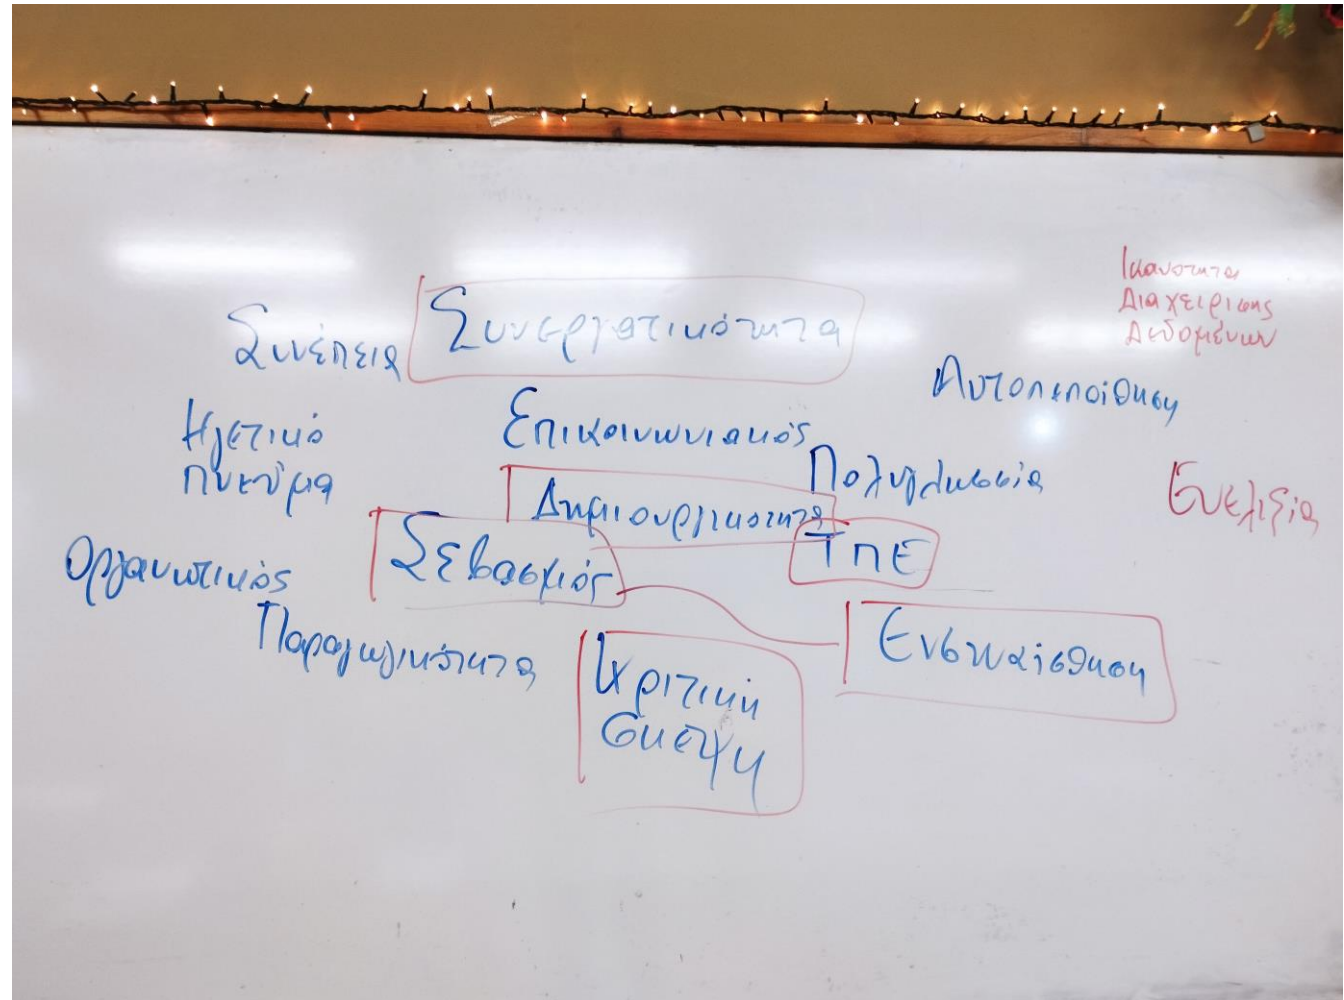 Ικανότητα
Διαχείρισης
Δεδομένων
Συνέπεια
Συνεργατικότητα
Αυτοπεποίθηση
Ηγετικό
πνεύμα
Επικοινωνιακός
Πολυγλωσσία
Ευελιξία
Δημιουργικότητα
Οργανωτικός
Σεβασμός
ΤΠΕ
Παραγωγικότητα
Κριτική
σκέψη
Ενσυναίσθηση